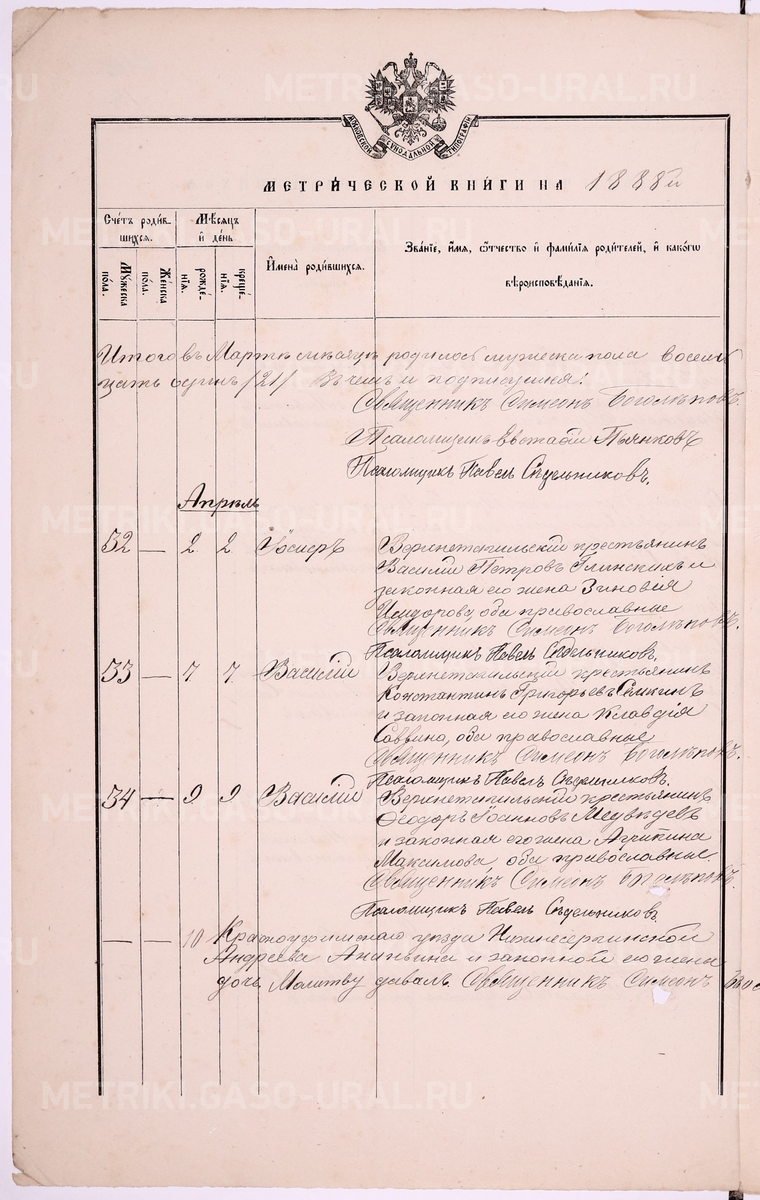 METRIKI.GASO-URAL.RU
МОСКОВСКОЙ СѴНОДАЛЬНОЙ ТИПОГРАФІИ
МЕТРИ́ЧЕСКОЙ КНИ́ГИ НА 1888 й
Сче́тъ роди́в-
шихся.
Му́жеска
пола.
Же́нска
пола.
Мѣсяцъ
и҆ де́нь.
рожде́-
нїя.
креще́-
нїя.
И҆мена̀ роди́вшихся.
Зва́нїе, и҆́мя, ѻ҆́тчество и҆ фамі́лїя роди́телей, и҆ како́гѡ
вѣроисповѣ́данїя.
Итого въ Мартѣ мѣсяцѣ родилось мужеска пола восемь
цать одинъ /21/ Въ чемъ и подписуемся:
Священникъ Симеонъ Боголѣповъ.
Псаломщикъ Евстафій Пьянковъ
Псаломщикъ Павелъ Сѣдельниковъ.
Апрѣль
32 — 2 2 Іосифъ Верхнетагильскій крестьянинъ
Василій Петровъ Глинскихъ и
законная его жена Зиновія
Исидорова, оба православные
Священникъ Симеонъ Боголѣповъ.
Псаломщикъ Павелъ Сѣдельниковъ.
33 — 7 7 Василій Верхнетагильскій крестьянинъ
Константинъ Григорьевъ Сёмкинъ
и законная его жена Клавдія
Саввина, оба православные
Священникъ Симеонъ Боголѣповъ.
Псаломщикъ Павелъ Сѣдельниковъ.
34 — 9 9 Василій Верхнетагильскій крестьянинъ
Ѳеодоръ Іоанновъ Медвѣдевъ
и законная его жена Агрипина
Максимова, оба православные.
Священникъ Симеонъ Боголѣповъ.
Псаломщикъ Павелъ Сѣдельниковъ.
— — 10 Красноуфимскаго уѣзда Нижнесергинской
Андреева Ананьина и законной его жены
дочь Молитву давалъ Священникъ Симеонъ